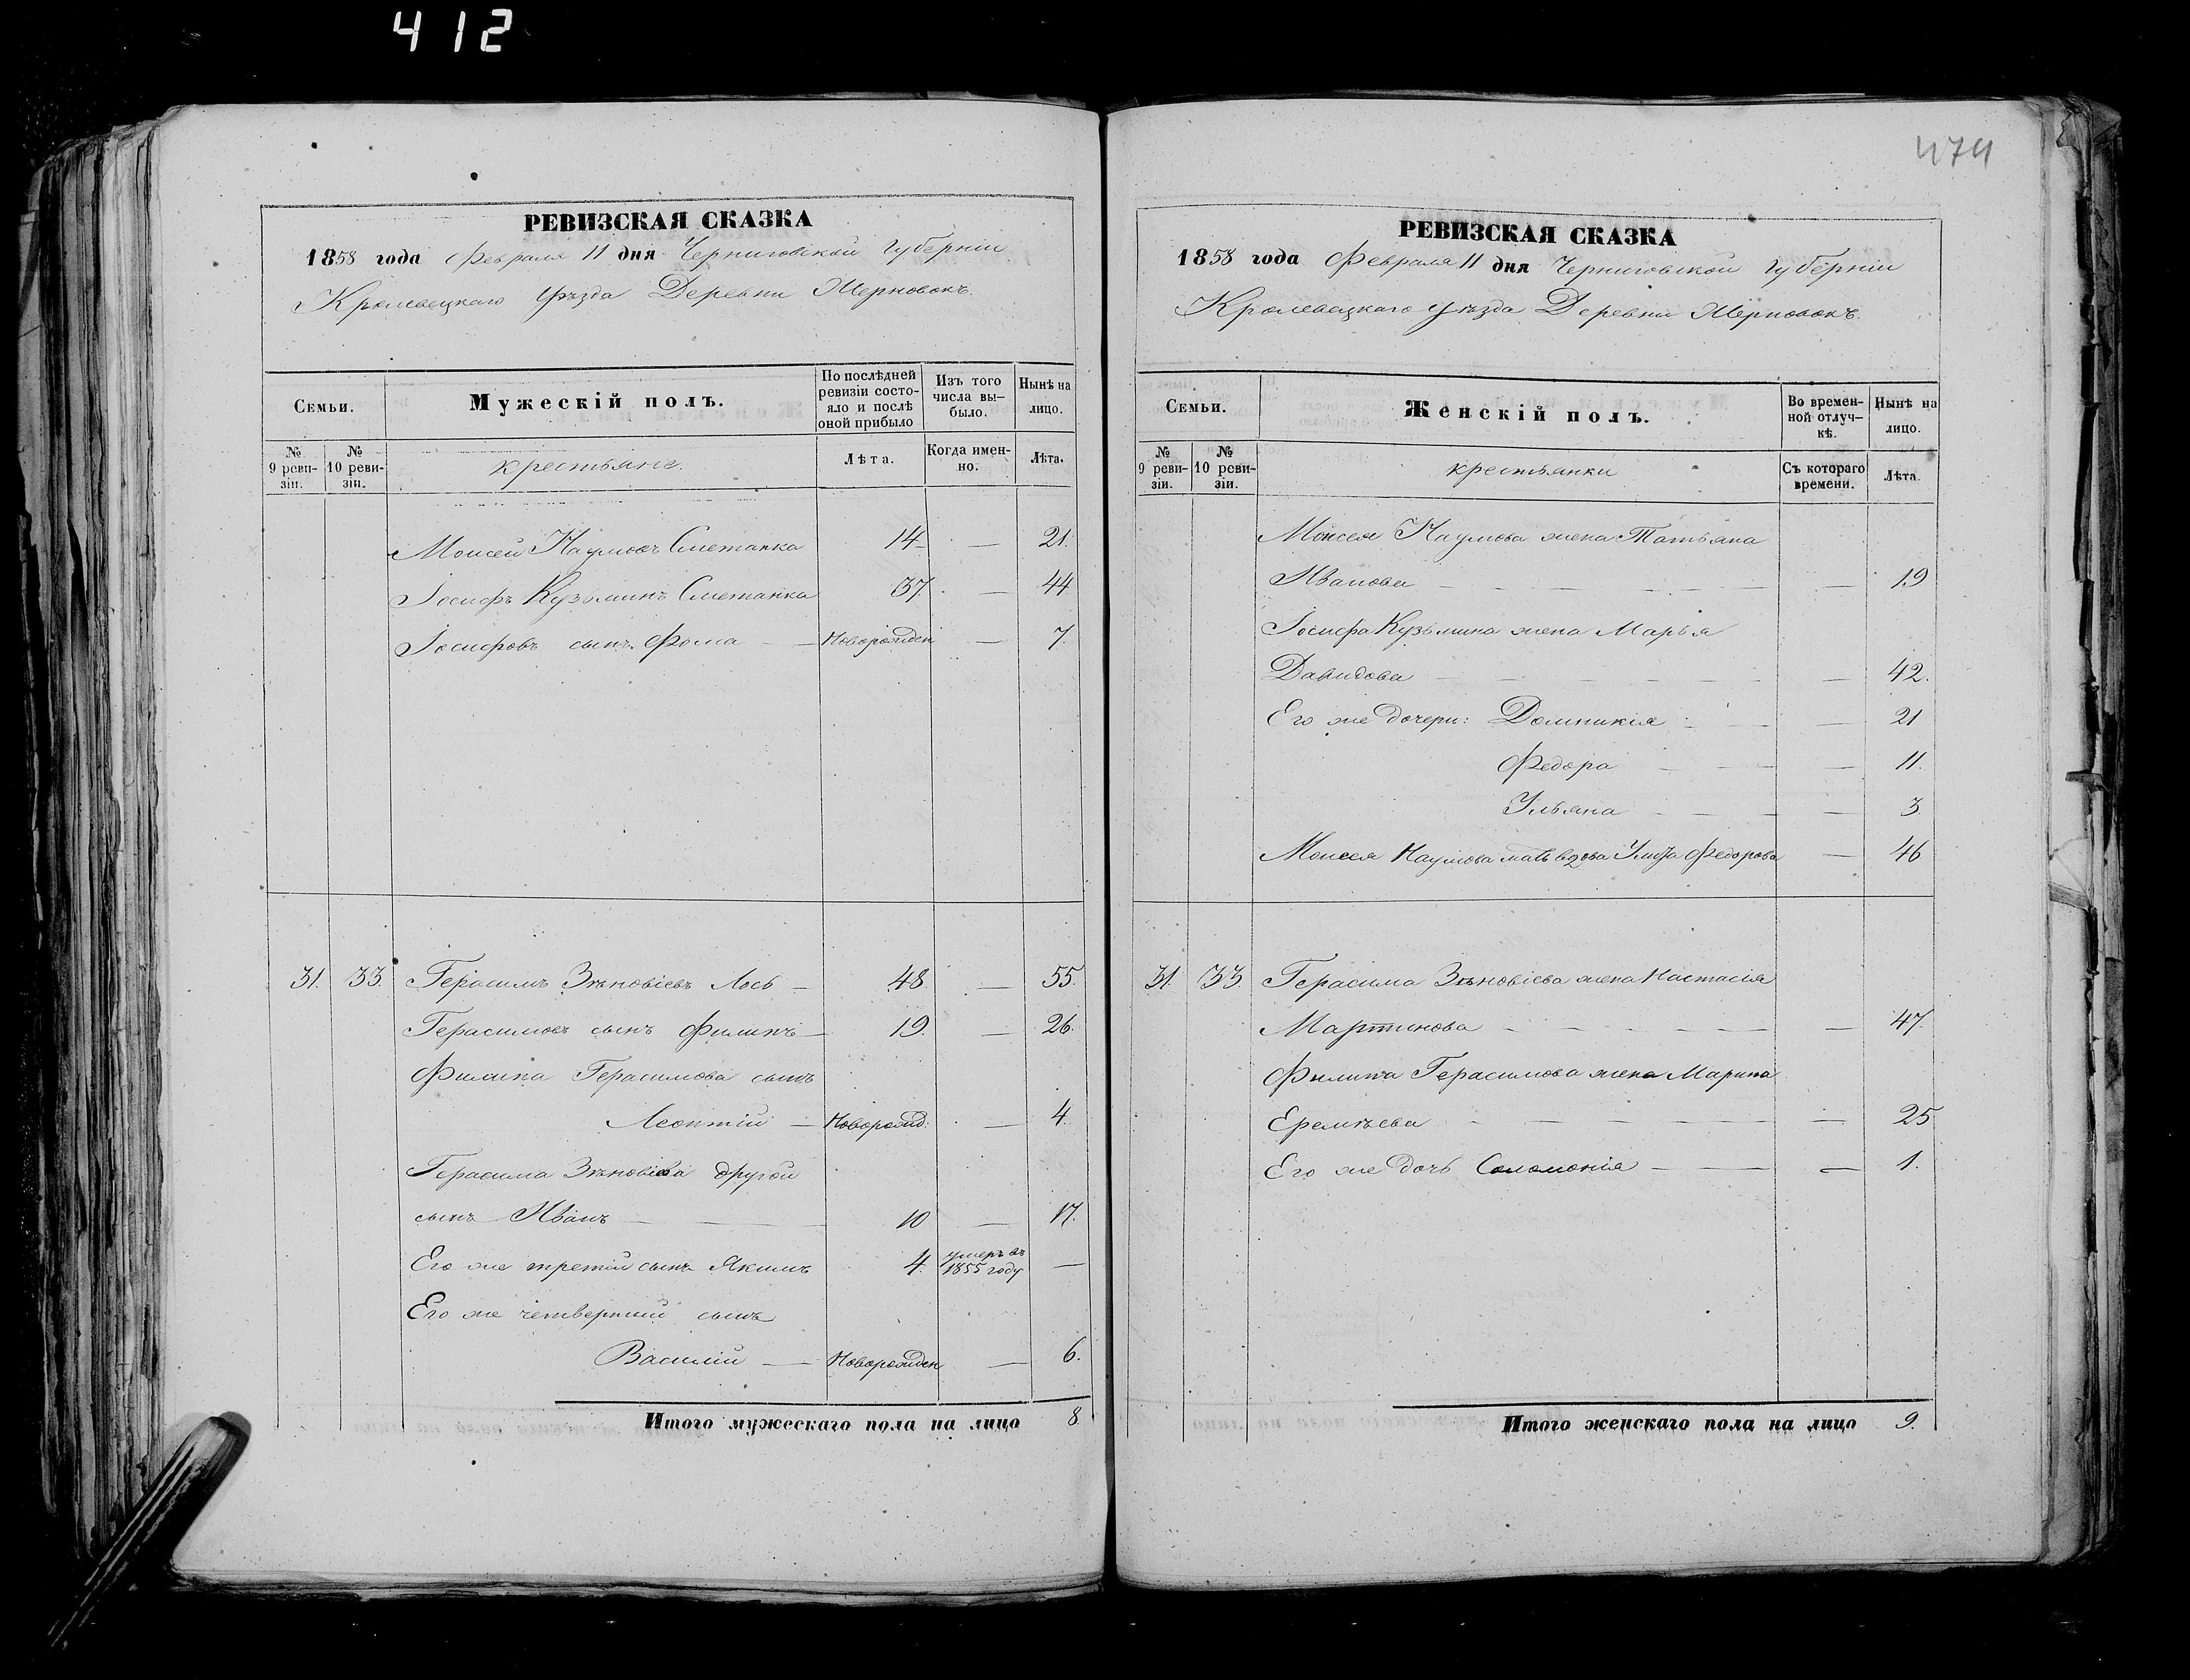 412
474
РЕВИЗСКАЯ СКАЗКА
1858 года Февраля 11 дня Черниговской Губерніи
Кролевецкаго Уѣзда Деревни
Семьи.
Мужескій полъ.
По послѣдней ревизіи состо-
яло и послѣ
оной прибыло
Изъ того
числа вы-
было.
Нынѣ на
лицо.
№
9 реви-
зіи.
№
10 реви-
зіи.
крестьяне.
Лѣта.
Когда имен-
но.
Лѣта.
Моисей Наумовъ Сметанка 14 — 21.
Іосифъ Кузьминъ Сметанка 37. — 44
Іосифовъ сынъ Фома — Новорожден — 7.
31. 33. Герасимъ Зѣновіевъ Лось — 48. — 55.
Герасимовъ сынъ Филипъ — 19. — 26.
Филипа Герасимова сынъ
Леонтій — Новорожд: — 4.
Герасима Зѣновіева другой
сынъ Иванъ — 10 — 17.
Его же третій сынъ Якимъ 4. умеръ въ
1855 году —
Его же четвертый сынъ
Василій — Новорожден — 6.
Итого мужескаго пола на лицо 8
РЕВИЗСКАЯ СКАЗКА
1858 года Февраля 11 дня Черниговской Губерніи
Кролевецкаго Уѣзда Деревни
Семьи.
Женскій полъ.
Во времен-
ной отлуч-
кѣ.
Нынѣ на
лицо.
№
9 реви-
зіи.
№
10 реви-
зіи.
крестьянки
Съ котораго
времени.
Лѣта.
Моисея Наумова жена Татьяна
Иванова — — 19
Іосифа Кузьмина жена Марья
Давидова — — 42.
Его же дочери: Домникія — — 21
Федора — — 11.
Ульяна — — 3.
Моисея Наумова мать вдова Улита Федорова — 46
31. 33. Герасима Зѣновіева жена Настасія
Мартинова — — 47.
Филипа Герасимова жена Марина
Еремѣева — — 25
Его же дочь Соломонія — — 1.
Итого женскаго пола на лицо 9.